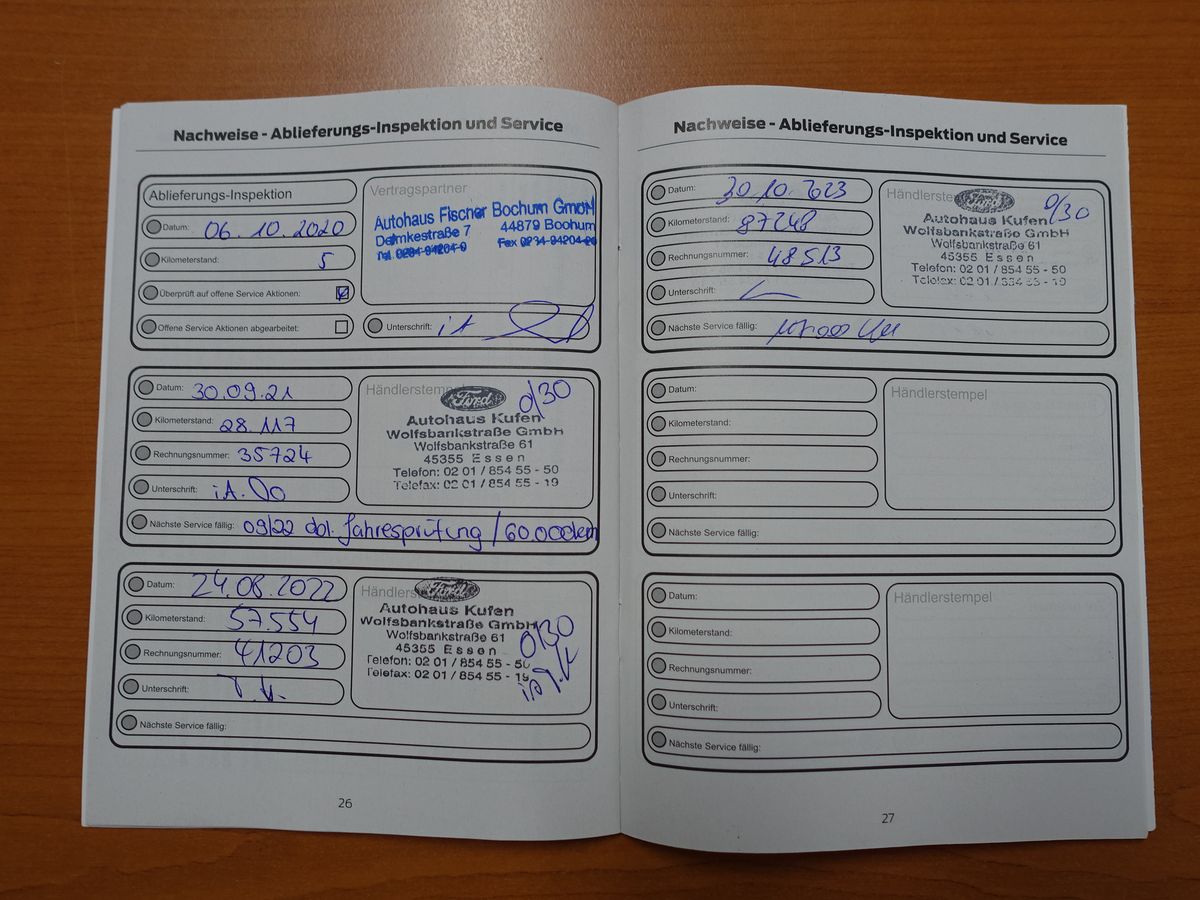 Nachweise - Ablieferungs-Inspektion und Service
Ablieferungs-Inspektion
Datum: 06.10.2020
Kilometerstand: 5
Überprüft auf offene Service Aktionen:
Offene Service Aktionen abgearbeitet:
Vertragspartner
Autohaus Fischer Bochum GmbH
Delmkestraße 7 44879 Bochum
Tel. 0234-94204-0 Fax 0234-94204-20
Unterschrift:
Datum: 30.09.21
Kilometerstand: 28.117
Rechnungsnummer: 35724
Unterschrift: iA.
Händlerstempel
Ford
0/30
Autohaus Kufen
Wolfsbankstraße GmbH
Wolfsbankstraße 61
45355 Essen
Telefon: 02 01 / 854 55 - 50
Telefax: 02 01 / 854 55 - 19
Nächste Service fällig: 09/22 obl. Jahresprüfung / 60.000dkm
Datum: 24.08.2022
Kilometerstand: 57.554
Rechnungsnummer: 41203
Unterschrift:
Händlers
Ford
Autohaus Kufen
Wolfsbankstraße GmbH
Wolfsbankstraße 61
45355 Essen
Telefon: 02 01 / 854 55 - 50
Telefax: 02 01 / 854 55 - 19
0/30
Nächste Service fällig:
26
Nachweise - Ablieferungs-Inspektion und Service
Datum: 30.10.2023
Kilometerstand: 87248
Rechnungsnummer: 48513
Unterschrift:
Händlerste
Ford
0/30
Autohaus Kufen
Wolfsbankstraße GmbH
Wolfsbankstraße 61
45355 Essen
Telefon: 02 01 / 854 55 - 50
Telefax: 02 01 / 854 55 - 19
Nächste Service fällig:
Datum:
Kilometerstand:
Rechnungsnummer:
Unterschrift:
Händlerstempel
Nächste Service fällig:
Datum:
Kilometerstand:
Rechnungsnummer:
Unterschrift:
Händlerstempel
Nächste Service fällig:
27